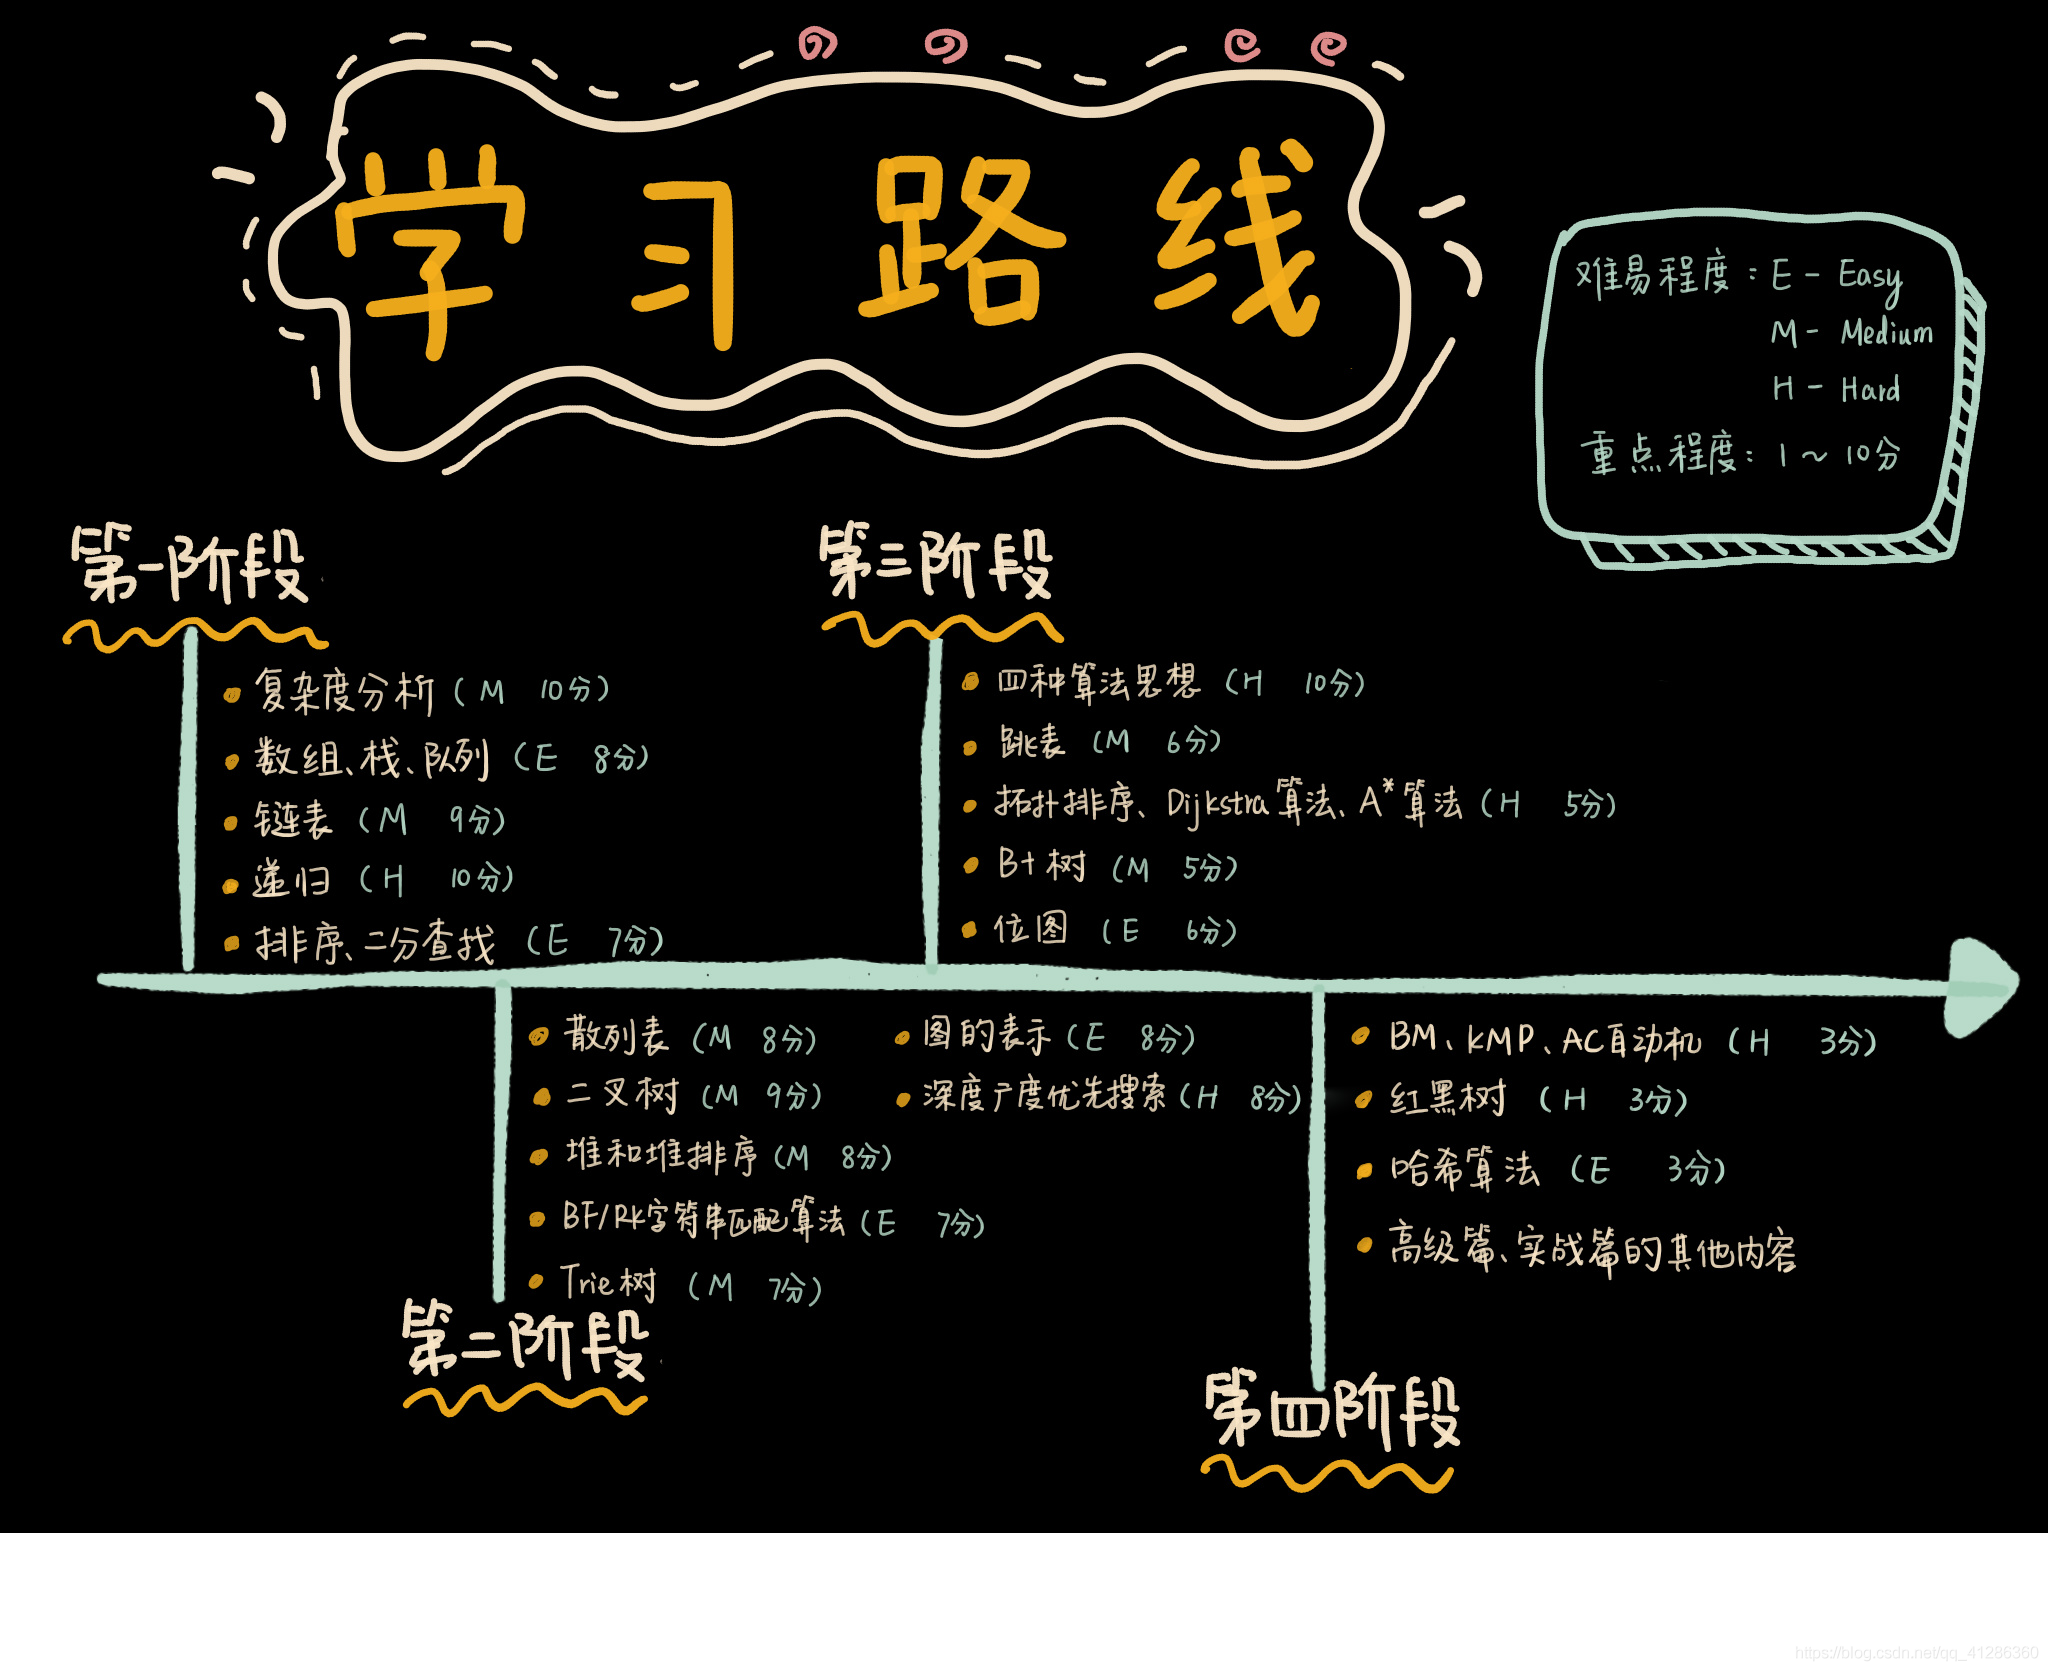 学习路线
难易程度：E - Easy
M - Medium
H - Hard
重点程度：1～10分
第一阶段
复杂度分析（M 10分）
数组、栈、队列（E 8分）
链表（M 9分）
递归（H 10分）
排序、二分查找（E 7分）
第三阶段
四种算法思想（H 10分）
跳表（M 6分）
拓扑排序、Dijkstra算法、A*算法（H 5分）
B+树（M 5分）
位图（E 6分）
散列表（M 8分）
二叉树（M 9分）
堆和堆排序（M 8分）
BF/RK字符串匹配算法（E 7分）
Trie树（M 7分）
图的表示（E 8分）
深度广度优先搜索（H 8分）
第二阶段
BM、KMP、AC自动机（H 3分）
红黑树（H 3分）
哈希算法（E 3分）
高级篇、实战篇的其他内容
第四阶段
https://blog.csdn.net/qq_41286360